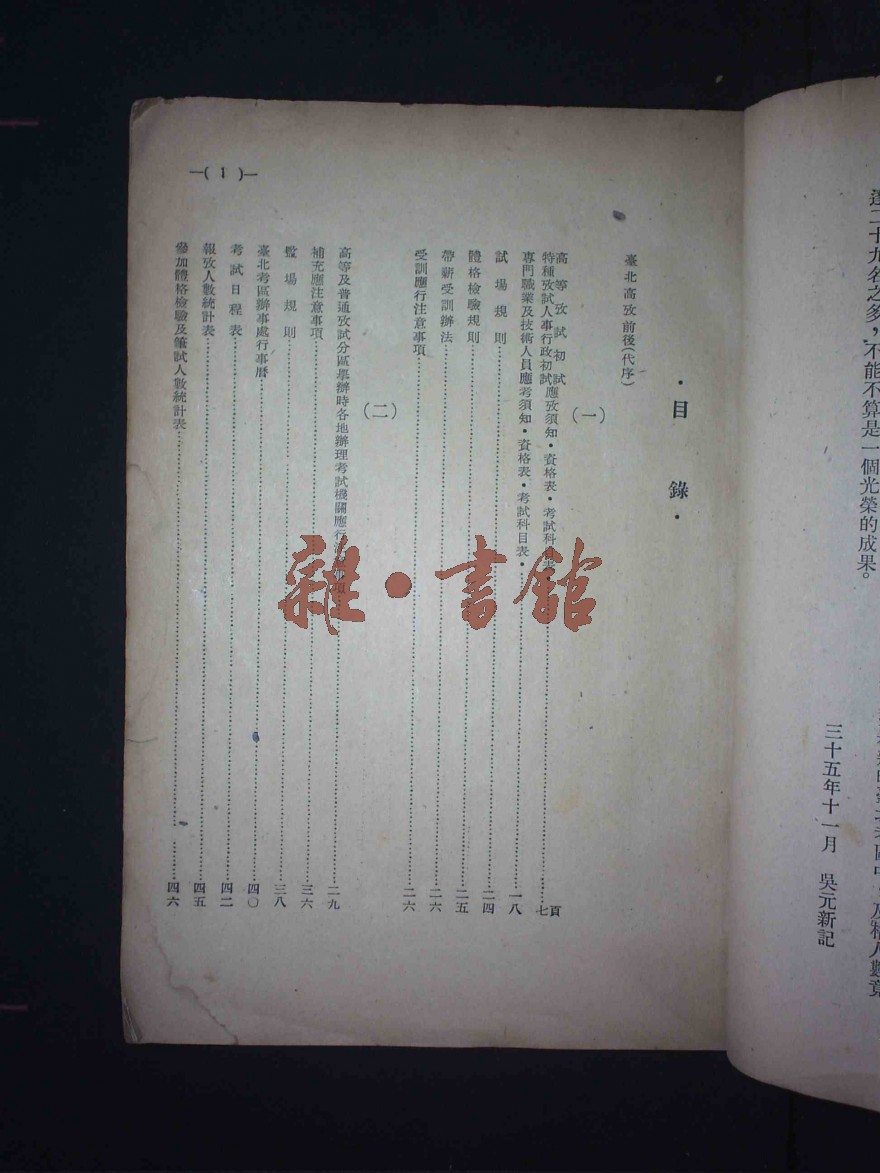 達二十九名之多，不能不算是一個光榮的成果。
三十五年十一月　吳元新記
—( 1 )—
・目　錄・
臺北高攷前後（代序）
（一）
高等攷試初試
特種攷試人事行政初試應攷須知・資格表・考試科目表………七頁
專門職業及技術人員應考須知・資格表・考試科目表・………一八
試場規則………二四
體格檢驗規則………二五
帶薪受訓辦法………二六
受訓應行注意事項………二六
（二）
高等及普通攷試分區舉辦時各地辦理考試機關應行　　項………二九
補充應注意事項………三六
監場規則………三八
臺北考區辦事處行事曆………四〇
考試日程表………四二
報攷人數統計表………四五
參加體格檢驗及筆試人數統計表………四六
雜・書館